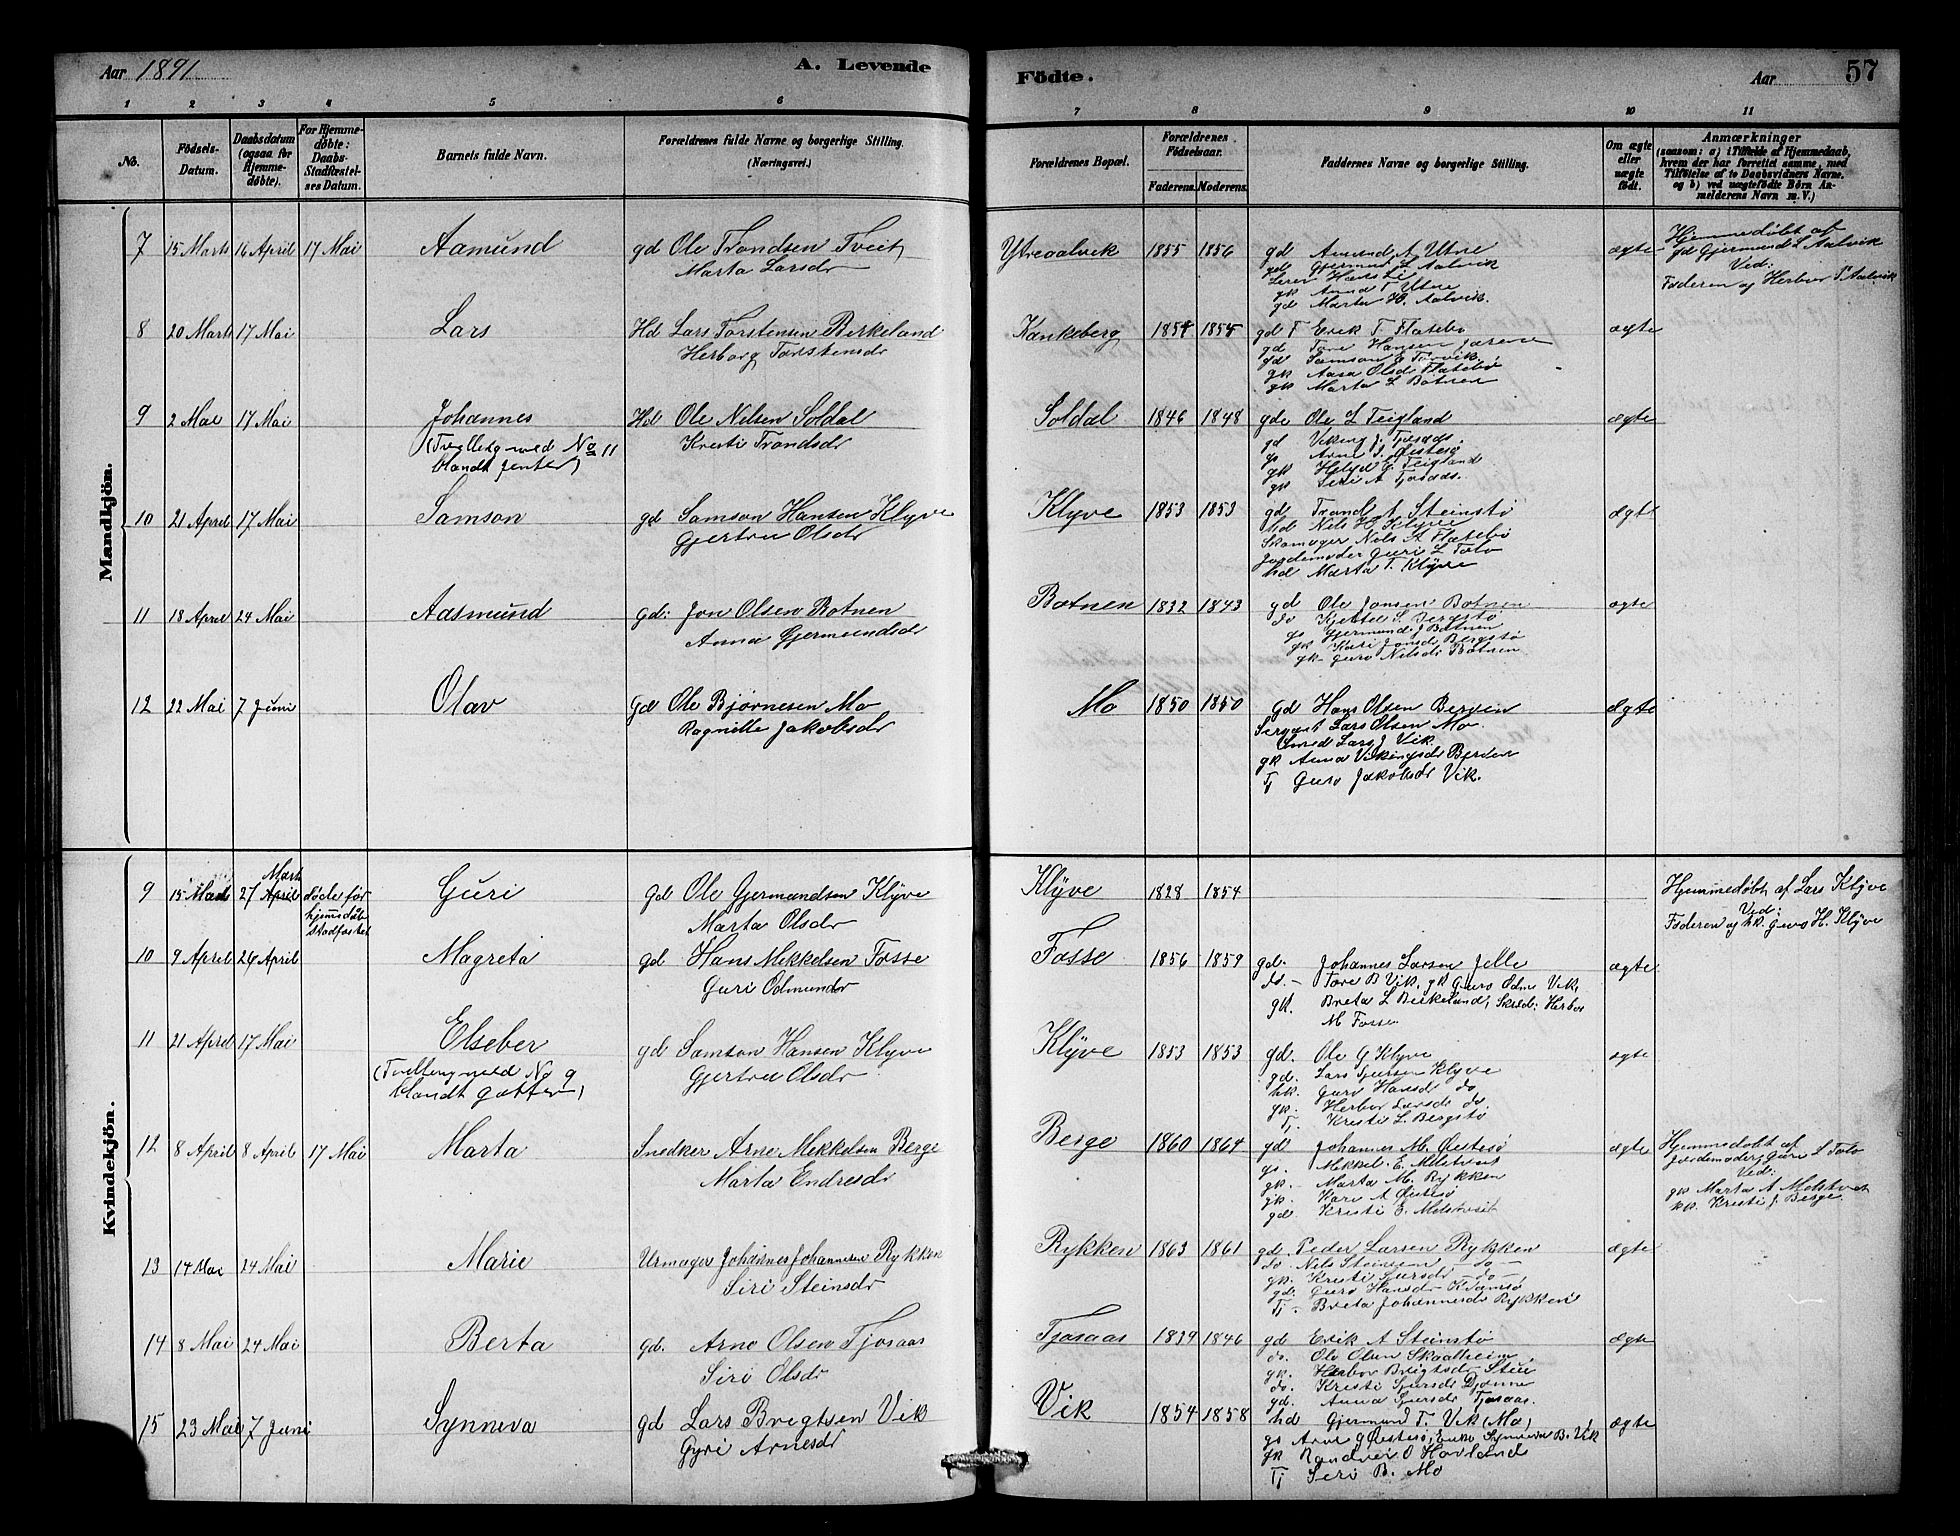 Aar 1891
A. Levende
Födte.
Aar 57
1 2 3 4 5 6 7 8 9 10 11
No.
Födsels-Datum.
Daabsdatum (ogsaa for Hjemme-døbte).
For Hjemme-døbte: Daabs-Stadfæstel-ses Datum.
Barnets fulde Navn.
Forældrenes fulde Navne og borgerlige Stilling. (Næringsvei.)
Forældrenes Bopæl.
Forældrenes Födselsaar.
Faderens. Moderens.
Faddernes Navne og borgerlige Stilling.
Om ægte eller uægte födt.
Anmærkninger (saasom: a) i Tilfælde af Hjemmedaab, hvem der har forrettet samme, med Tilföielse af to Daabsvidners Navne. og b) ved uægtefödte Börn An-melderens Navn m. V.)
Mandkjön.
7 15 Marts 16 April 17 Mai Aamund gd Ole Trondsen Tveit Ytreaalvik 1855 1856 gd Amund A Utne ægte Hjemmedøbt af
Marta Larsdr gd Gjermund L Aalvik gd Gjermund L Aalvik
Ved:
gk Anna T Utne Faderen og Herbor T Aalvik
gd Marta H. Aalvik.
8 20 Marts 17 Mai Lars Hd Lars Torstensen Birkeland Kankeberg 1854 1854 gd T Erik T Flatebø ægte
Herborg Torstensdr gd Tore Hansen
gd Samson E Torvik.
gk Aasa Olsdr Flatebø
gk Marta L Botnen
9 2 Mai 17 Mai Johannes Hd Ole Nilsen Soldal Soldal 1846 1848 gd Ole L Teigland ægte
(Tvilling med No 11 Kristi Trondsdr gd Viking J. Tjosaas.
blandt jenter) gs Arne J. Øistesø
gk E Teigland
gk Siri A Tjosaas.
10 21 April 17 Mai Samson gd Samson Hansen Klyve Klyve 1853 1853 gd Trond A Steinstø ægte
Gjertru Olsdr hd Nils H. Klyve
Skomager Nils A Flatebø
Jordemoder Guri L Tolo
hd Marta T. Klyve
11 18 April 24 Mai Aasmund gd: Jon Olsen Botnen Botnen 1832 1843 gd Ole Jonsen Botnen ægte
Anna Gjermundsdr do Kjettel S. Bergstø
gs Gjermund J Botnen
gk Kari Jonsdr Bergstø
gk Guro Nilsdr Botnen
12 22 Mai 7 Juni Olav Gd Ole Bjørnesen Mo Mo 1850 1850 Gd Hans Olsen Berven ægte
Ragnilte Jakobsdr Sergant Lars Olsen Mo.
Smed Lars J Vik.
gk Anna Vikingsdr Berven
Tj Guro Jakobsdr Vik.
Kvindekjön.
9 15 Marts 27 April Marts døde før hjemmedåb stadfæstet Guri gd Ole Gjermundsen Klyve Klyve 1828 1854 Hjemmedøbt af Lars Klyve
Marta Olsdr Ved:
Faderen og hk. Guro H. Klyve
10 9 April 26 April Magreta gd Hans Mikkelsen Fosse Fosse 1856 1859 gd. Johannes Larsen Jelle ægte
Guri Odmundsdr do. – Tore B Vik, gk Guro Odms Vik,
gk. Breta L Birkeland, Herbor
M Fosse
11 21 April 17 Mai Elseber gd Samson Hansen Klyve Klyve 1853 1853 gd. Ole G Klyve ægte
(Tvilling med No 9 Gjertru Olsdr gd. Lars Sjursen Klyve
blandt gutter) hk. Guro Hansdr do
gk. Herbor Larsdr do
Tj. Kristi L. Bergstø
12 8 April 8 April 17 Mai Marta Snedker Arne Mikkelsen Berge Berge 1860 1864 gd Johannes M. Øistesø ægte Hjemmedøbt af
Marta Endresdr gs. Mikkel E. Melstveit Jordemoder Guri L Tolo
gk. Marta M. Rykken Ved:
gk. Kari A Øistesø gk Marta A Melstveit
gd. Kristi E. Melstveit Kristi J. Berge.
13 14 Mai 24 Mai Marie Urmager Johannes Johannesen Rykken Rykken 1863 1861 gd. Peder Larsen Rykken ægte
Siri Steinsdr do. Nils Steinsen – do –
gk. Kristi Sjursdr – do –
gd. Guro Hansdr
Tj – Breta Johannesdr Rykken
14 8 Mai 24 Mai Berta gd. Arne Olsen Tjosaas Tjosaas 1839 1846 gd Erik A Steinstø ægte
Siri Olsdr do. Ole Olsen Skaalheim,
gk. Herbor Brigtsdr Steie
do. Kristi Sjursdr Djønne
gd. Anna Sjursdr Tjosaas.
15 23 Mai 7 Juni Synneva gd Lars Brigtsen Vik Vik 1854 1858 hd Gjermund T. Vik (Mo) ægte
Gyri Arnesdr gs Arne G Øistesø, Enke Synneva B. Vik
gk Randvei O Hovland
Tj Siri B. Mo